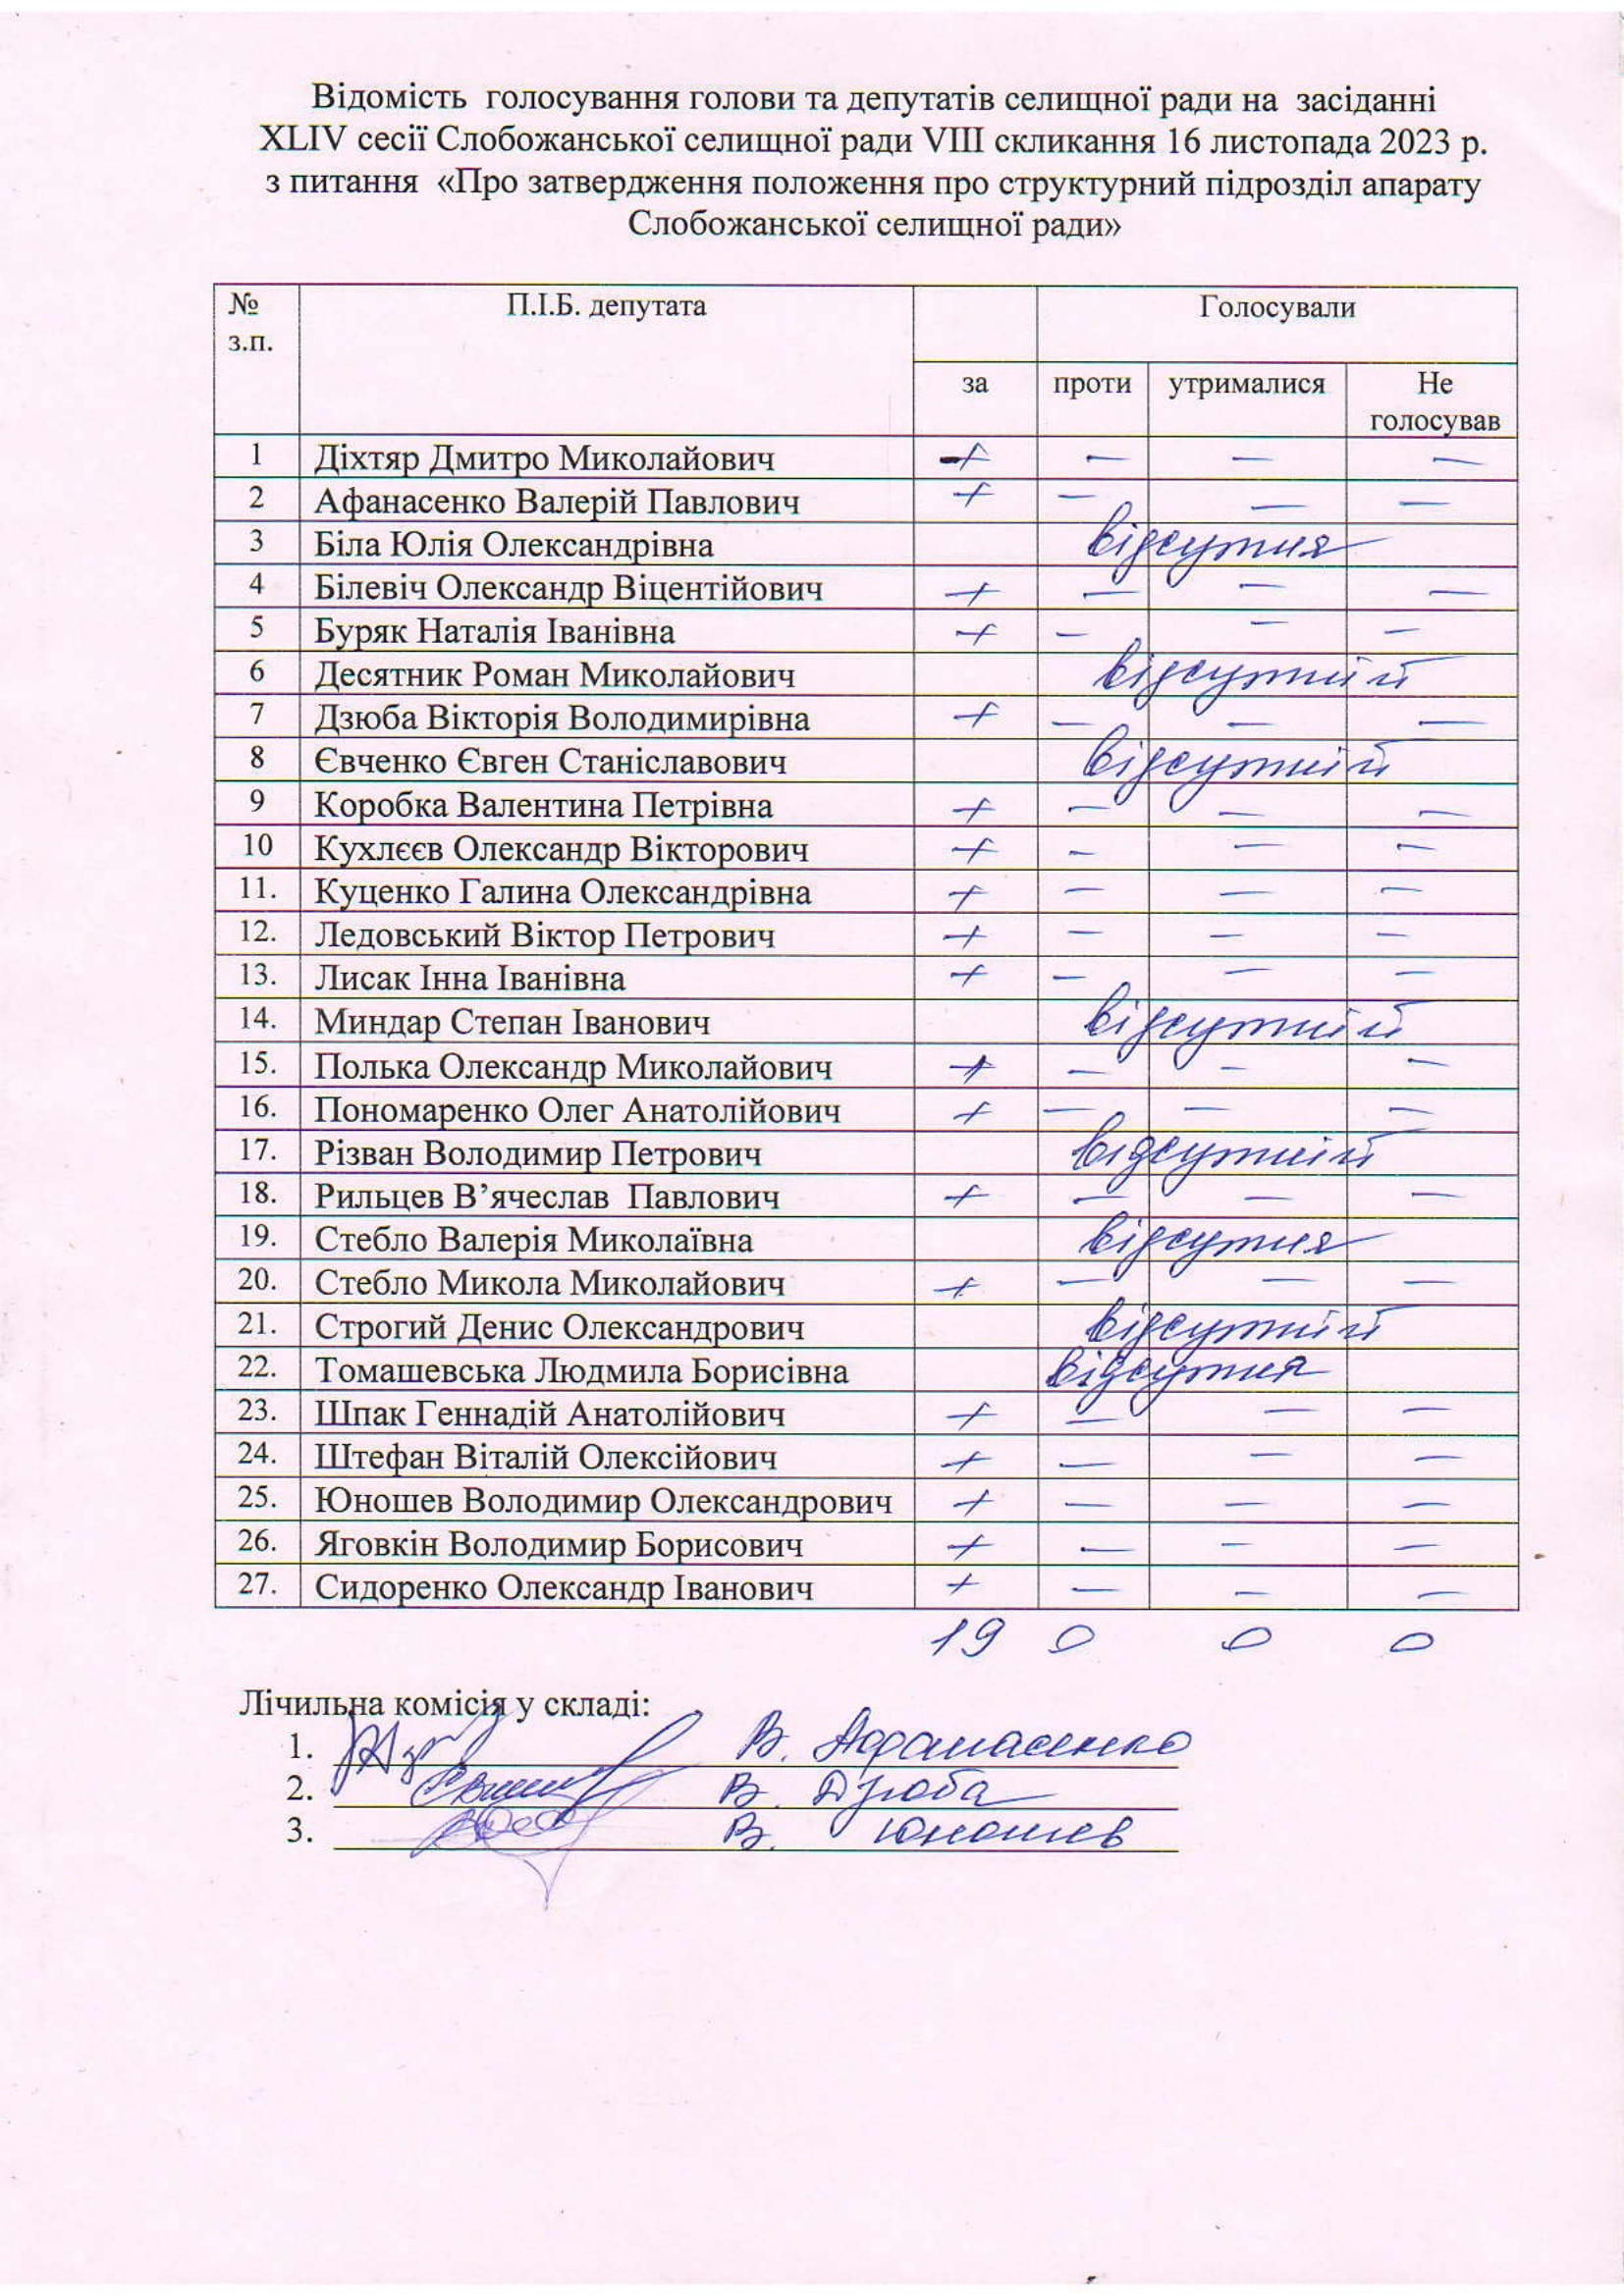 Відомість голосування голови та депутатів селищної ради на засіданні
XLIV сесії Слобожанської селищної ради VIII скликання 16 листопада 2023 р.
з питання «Про затвердження положення про структурний підрозділ апарату
Слобожанської селищної ради»
№ з.п. П.І.Б. депутата Голосували
за проти утрималися Не голосував
1 Діхтяр Дмитро Миколайович + — — —
2 Афанасенко Валерій Павлович + — — —
3 Біла Юлія Олександрівна відсутня
4 Білевіч Олександр Віцентійович + — — —
5 Буряк Наталія Іванівна + — — —
6 Десятник Роман Миколайович відсутній
7 Дзюба Вікторія Володимирівна + — — —
8 Євченко Євген Станіславович відсутній
9 Коробка Валентина Петрівна + — — —
10 Кухлєєв Олександр Вікторович + — — —
11. Куценко Галина Олександрівна + — — —
12. Ледовський Віктор Петрович + — — —
13. Лисак Інна Іванівна + — — —
14. Миндар Степан Іванович відсутній
15. Полька Олександр Миколайович + — — —
16. Пономаренко Олег Анатолійович + — — —
17. Різван Володимир Петрович відсутній
18. Рильцев В’ячеслав Павлович + — — —
19. Стебло Валерія Миколаївна відсутня
20. Стебло Микола Миколайович + — — —
21. Строгий Денис Олександрович відсутній
22. Томашевська Людмила Борисівна відсутня
23. Шпак Геннадій Анатолійович + — — —
24. Штефан Віталій Олексійович + — — —
25. Юношев Володимир Олександрович + — — —
26. Яговкін Володимир Борисович + — — —
27. Сидоренко Олександр Іванович + — — —
19 0 0 0
Лічильна комісія у складі:
1. В. Афанасенко
2. В. Дзюба
3. В. Юношев